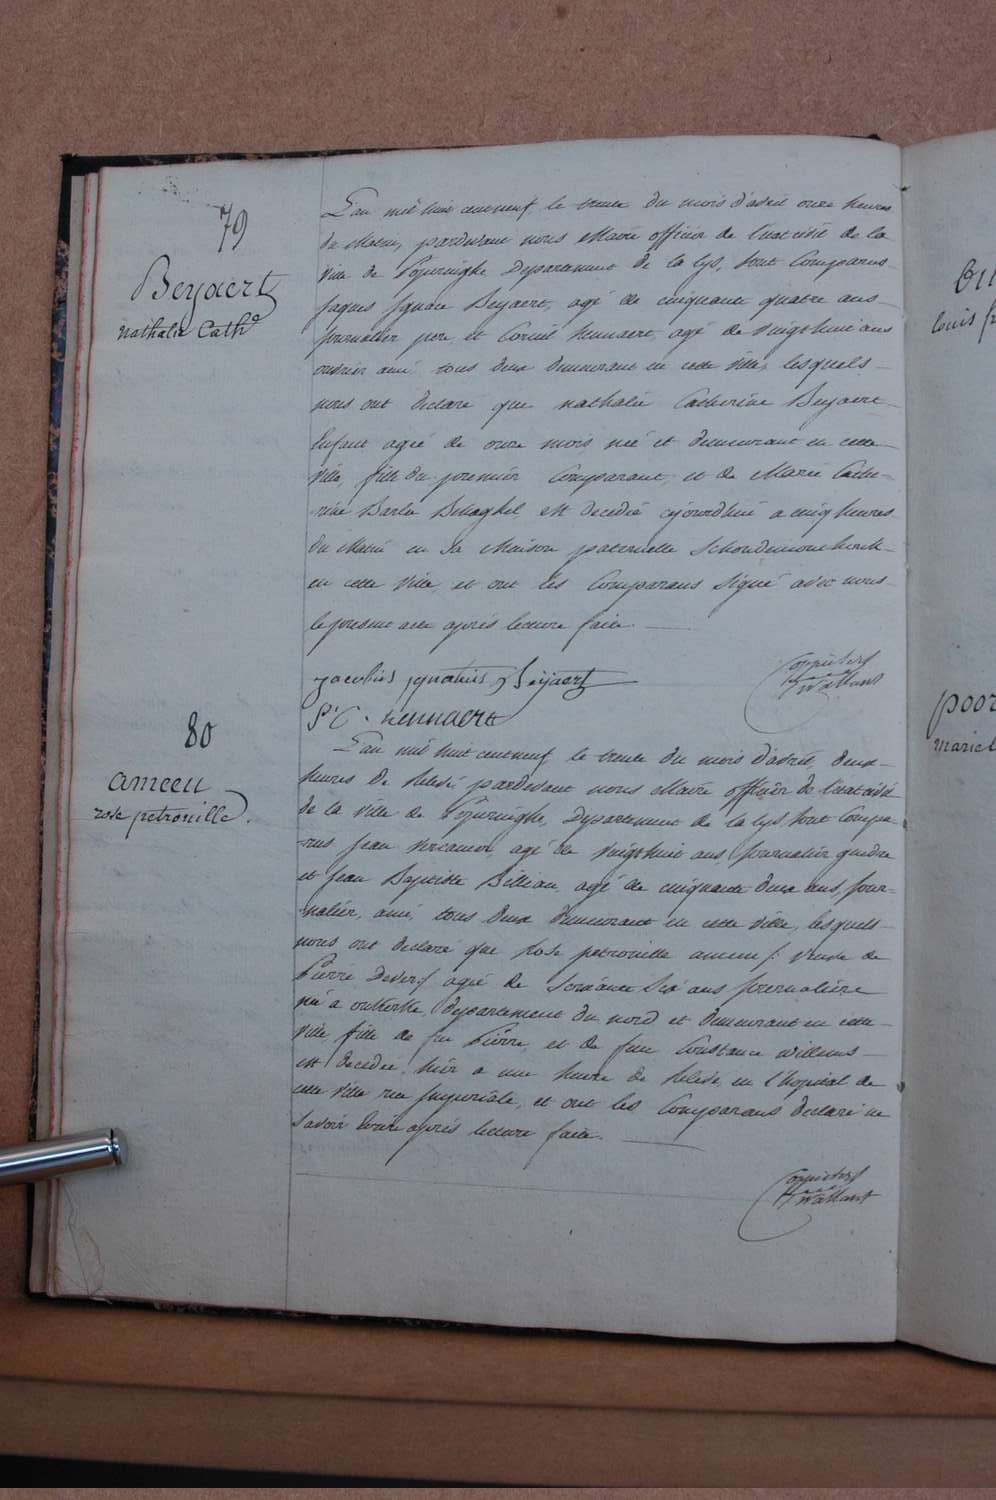 79
Beyaert
nathalie Cath^e
L'an mil huit cent neuf le trente du mois d'avril onze heures
du Matin, pardevant nous Maire officier de l'etat civil de la
ville de Poperinghe Departement de la Lys, sont Comparus
Jaques Ignace Beyaert, agé de cinquante quatre ans
journalier pere, et Corneil Hennaert, agé de vingt huit ans
ouvrier ami, tous deux demeurant en cette ville, lesquels
nous ont declaré que nathalie Catherine Beyaert
Enfant agée de onze mois, née et demeurant en cette
ville, fille du premier Comparant, et de Marie Cathe-
-rine Barbe est decedée cejourd'hui a cinq heures
du Matin en sa Maison paternelle
en cette ville, et ont les Comparans signé avec nous
le present acte après lecture faite.
jacobus ignatius Beyaert
P: C. Hennaert
80
ameeu
rose petronille.
L'an mil huit cent neuf le trente du mois d'avril, deux
heures de relevé, pardevant nous Maire officier de l'etat civil
de la ville de Poperinghe, Departement de la Lys sont Compa-
-rus Jean agé de vingt huit ans, journalier gendre
et Jean Baptiste Billiau, agé de cinquante deux ans, jour-
-nalier, ami, tous deux demeurant en cette ville, lesquels
nous ont declaré que Rose petronille ameeu, veuve de
Pierre agée de soixante six ans journaliere
née a outtersteene, departement du nord et demeurant en cette
ville, fille de feu Pierre, et de feue Constance willems
est decedée hier a une heure de relevé, en l'hospital de
cette ville rue Imperiale, et ont les Comparans declaré ne
savoir ecrire après lecture faite.
louis
poor